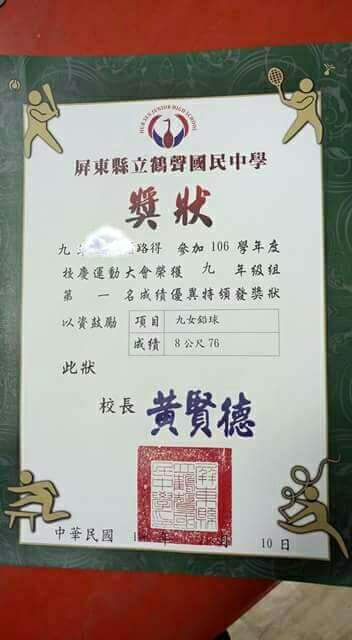 HER SEN JUNIOR HIGH SCHOOL
屏東縣立鶴聲國民中學
獎狀
九 路得 參加 106 學年度
校慶運動大會榮獲 九 年級組
第 一 名成績優異特頒發獎狀
以資鼓勵
項目 九女鉛球
成績 8公尺76
此狀
校長 黃賢德
屏東縣
立鶴聲國
民中學
中華民國 年 月 10 日